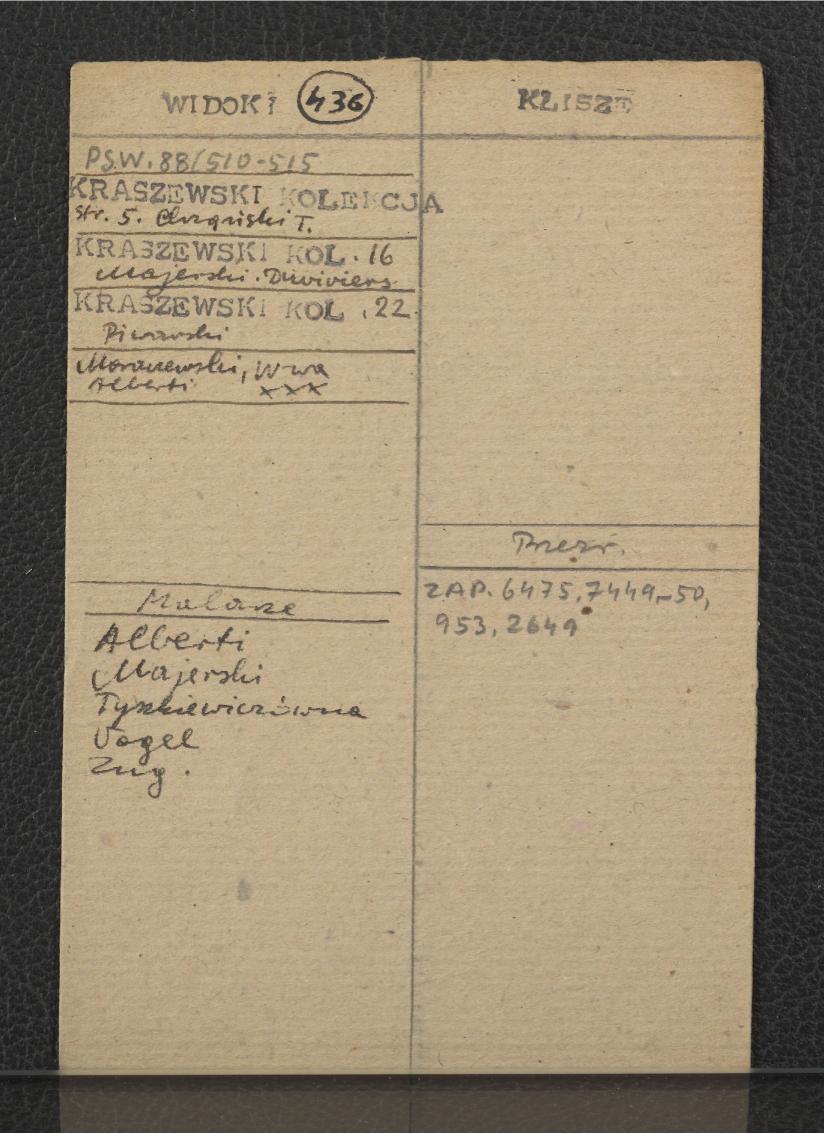 WIDOKI 436
P.S.W. 88/510-515
KRASZEWSKI KOLEKCJA
str. 5. Chrząński T.
KRASZEWSKI KOL. 16
Majerski. Duviviers
KRASZEWSKI KOL. 22
Piwarski
Moraczewski, W-wa
Alberti xxx
Malarze
Alberti
Majerski
Tyszkiewiczówna
Vogel
Zug.
KLISZE
Przeźr.
ZAP. 6475, 7449-50,
953, 2649